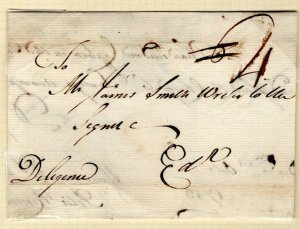 4
To
Mr James Smith Writer to the
Segnet
Edr
Delegence